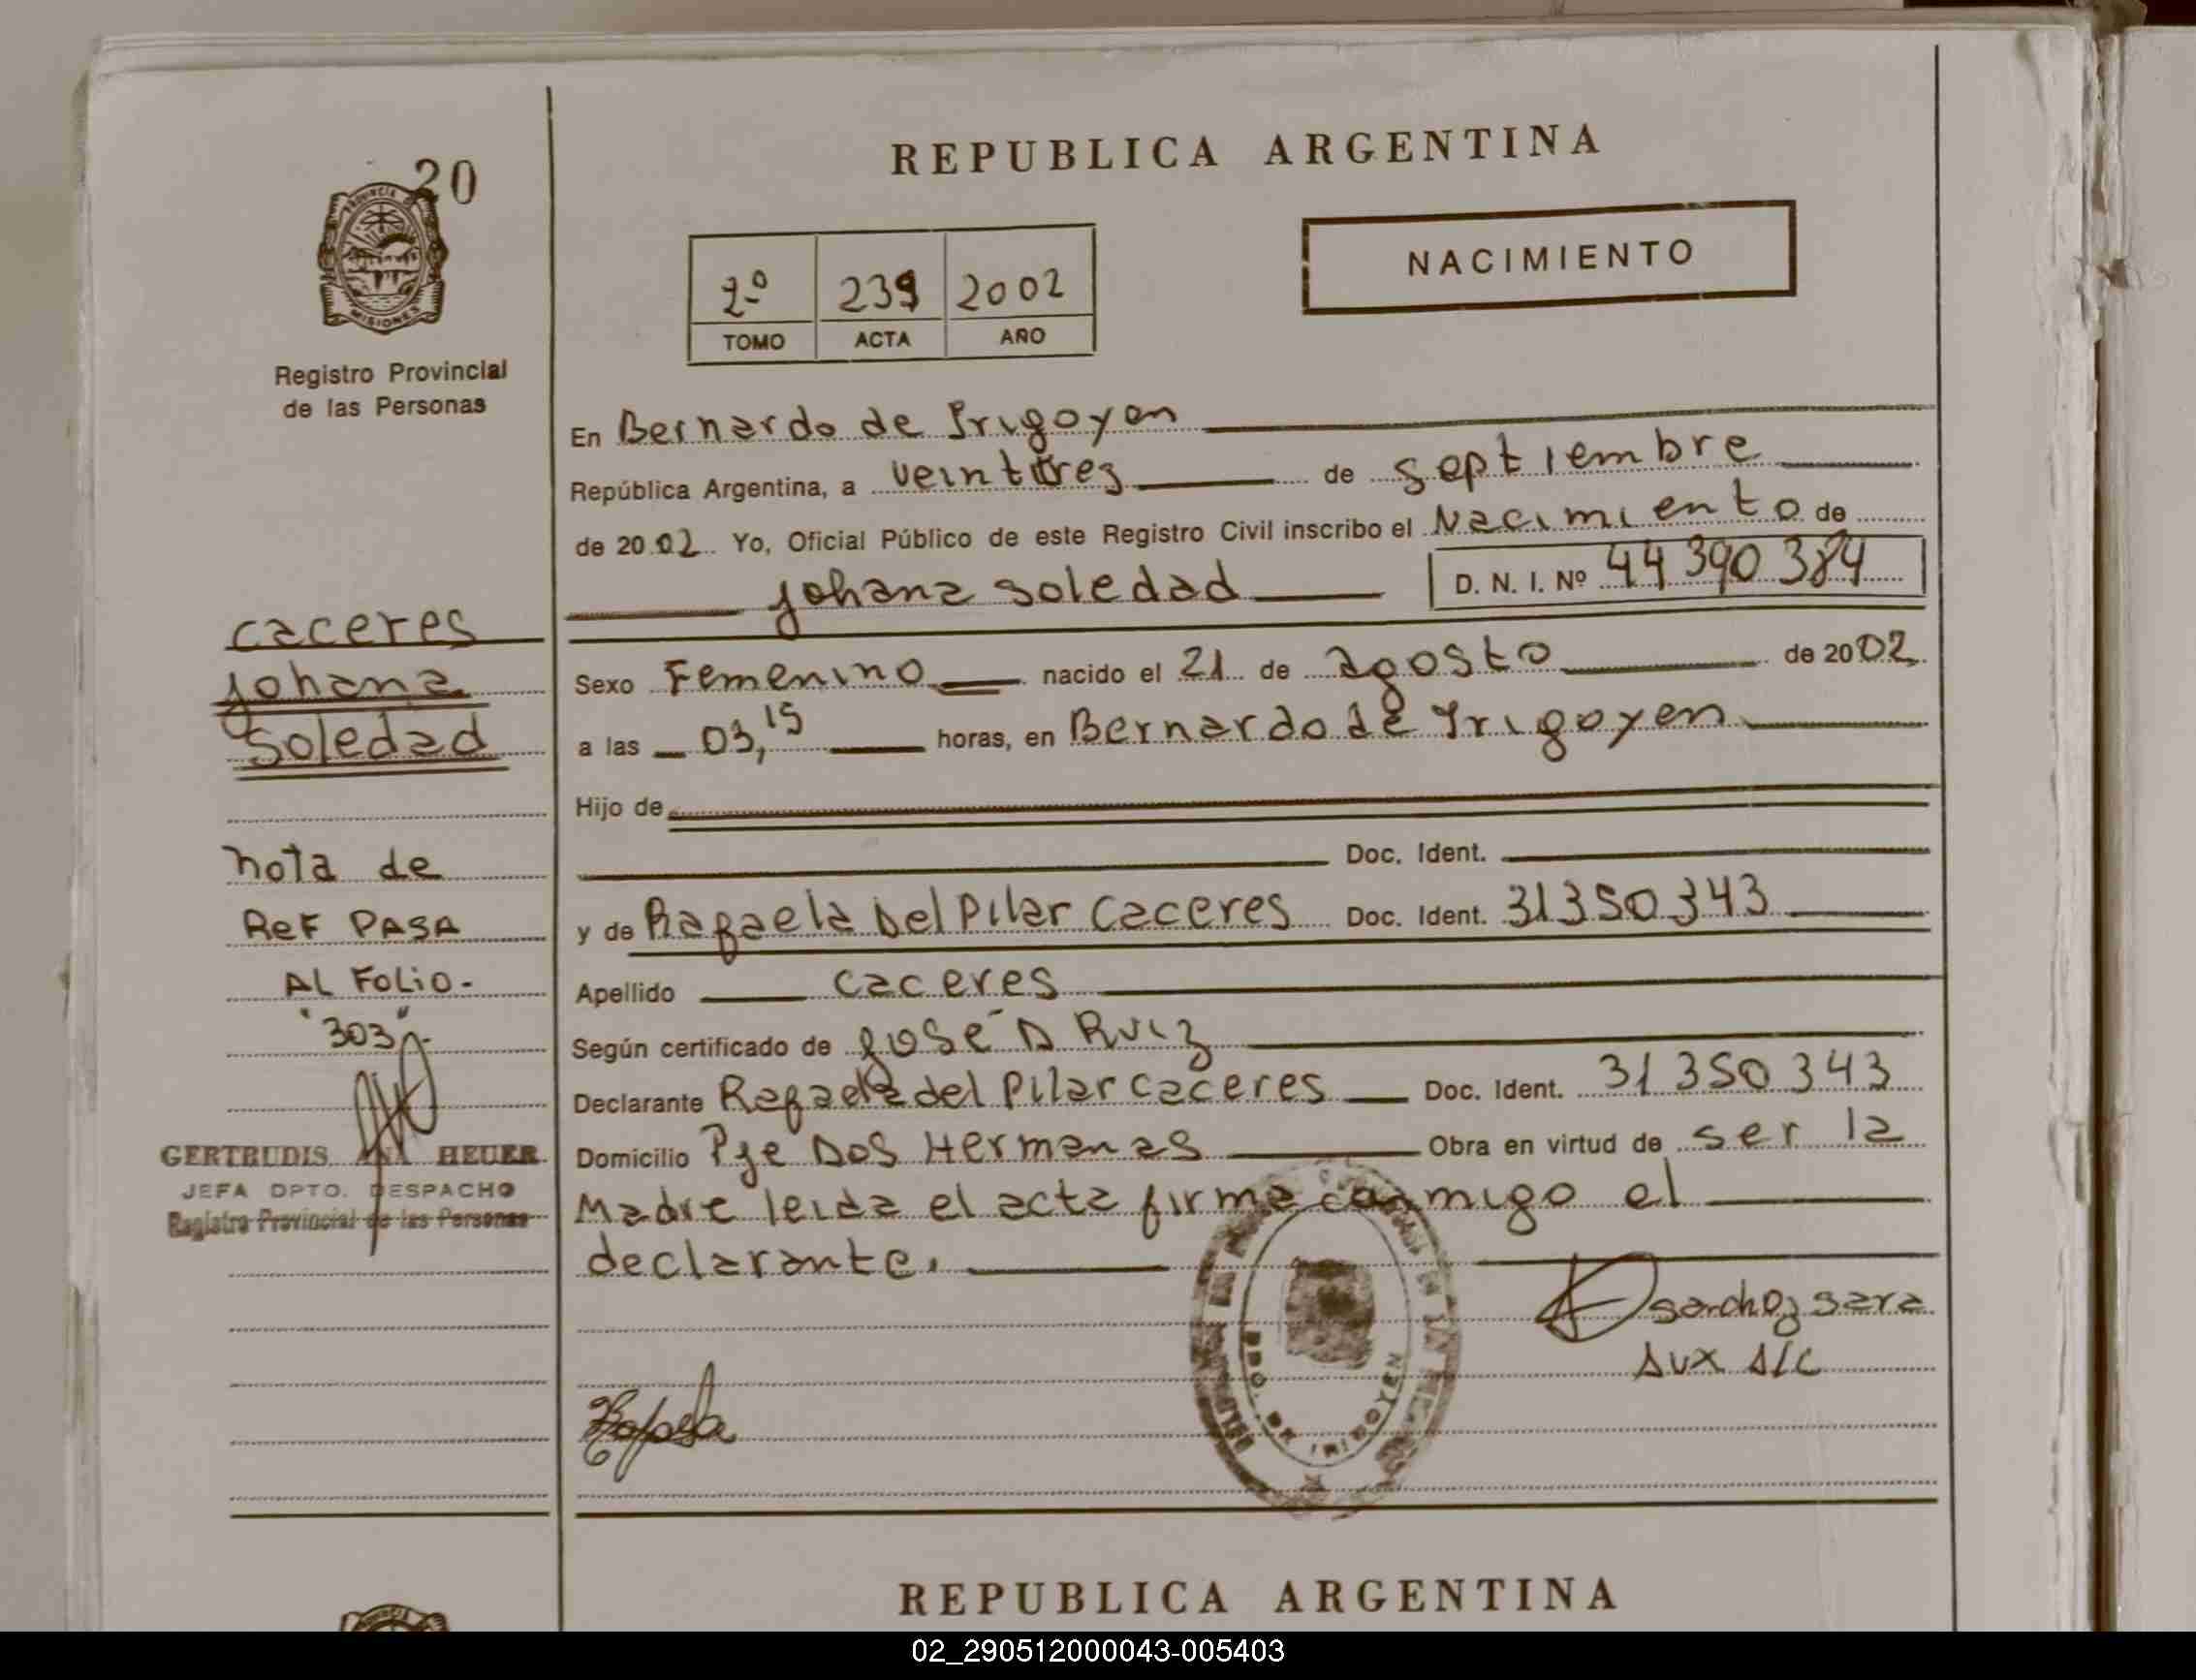 20
PROVINCIA
MISIONES
Registro Provincial
de las Personas
caceres
Johana
Soledad
nota de
REF PASA
AL FOLIO-
"303"
GERTRUDIS ANA HEUER
JEFA DPTO. DESPACHO
Registro Provincial de las Personas
REPUBLICA ARGENTINA
2º 239 2002
TOMO ACTA AÑO
NACIMIENTO
En Bernardo de Irigoyen
República Argentina, a veintitres de septiembre
de 2002 Yo, Oficial Público de este Registro Civil inscribo el Nacimiento de
Johana Soledad D. N. I. Nº 44 390 384
Sexo Femenino nacido el 21 de agosto de 2002
a las 03,15 horas, en Bernardo de Irigoyen
Hijo de
Doc. Ident.
y de Rafaela Del Pilar Caceres Doc. Ident. 31350343
Apellido caceres
Según certificado de José A Ruiz
Declarante Rafaela del Pilar caceres Doc. Ident. 31 350 343
Domicilio Pje Dos Hermanas Obra en virtud de ser la
Madre leida el acta firma conmigo el
declarante.
sanchez sara
AUX A/C
Rafaela
BDO. DE IRIGOYEN
REPUBLICA ARGENTINA
02_290512000043-005403